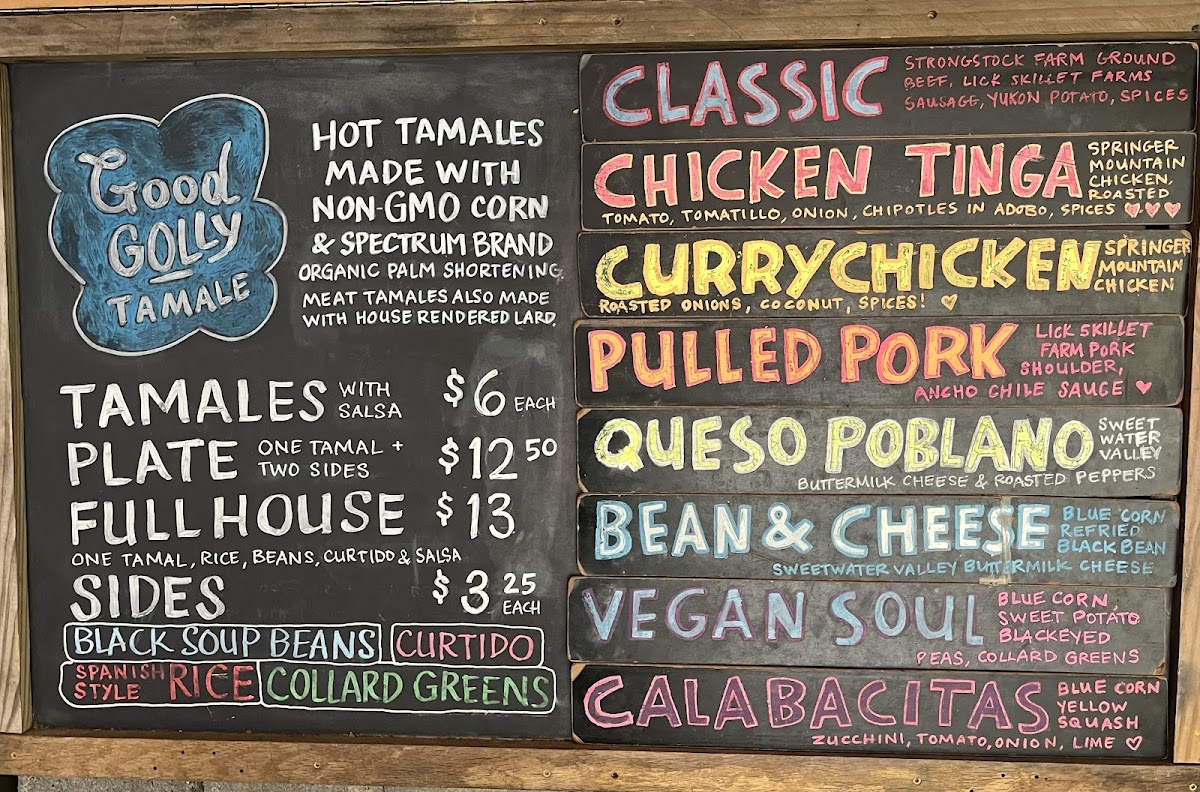 Good
GOLLY
TAMALE
HOT TAMALES
MADE WITH
NON-GMO CORN
& SPECTRUM BRAND
ORGANIC PALM SHORTENING.
MEAT TAMALES ALSO MADE
WITH HOUSE RENDERED LARD.
TAMALES WITH SALSA $6 EACH
PLATE ONE TAMAL + TWO SIDES $12 50
FULL HOUSE $13
ONE TAMAL, RICE, BEANS, CURTIDO & SALSA
SIDES $3 25 EACH
BLACK SOUP BEANS CURTIDO
SPANISH STYLE RICE COLLARD GREENS
CLASSIC STRONGSTOCK FARM GROUND
BEEF, LICK SKILLET FARMS
SAUSAGE, YUKON POTATO, SPICES
CHICKEN TINGA SPRINGER
MOUNTAIN
CHICKEN,
ROASTED
TOMATO, TOMATILLO, ONION, CHIPOTLES IN ADOBO, SPICES
CURRY CHICKEN SPRINGER
MOUNTAIN
CHICKEN
ROASTED ONIONS, COCONUT, SPICES!
PULLED PORK LICK SKILLET
FARM PORK
SHOULDER,
ANCHO CHILE SAUCE
QUESO POBLANO SWEET
WATER
VALLEY
BUTTERMILK CHEESE & ROASTED PEPPERS
BEAN & CHEESE BLUE CORN
REFRIED
BLACK BEAN
SWEETWATER VALLEY BUTTERMILK CHEESE
VEGAN SOUL BLUE CORN,
SWEET POTATO
BLACKEYED
PEAS, COLLARD GREENS
CALABACITAS BLUE CORN
YELLOW
SQUASH
ZUCCHINI, TOMATO, ONION, LIME